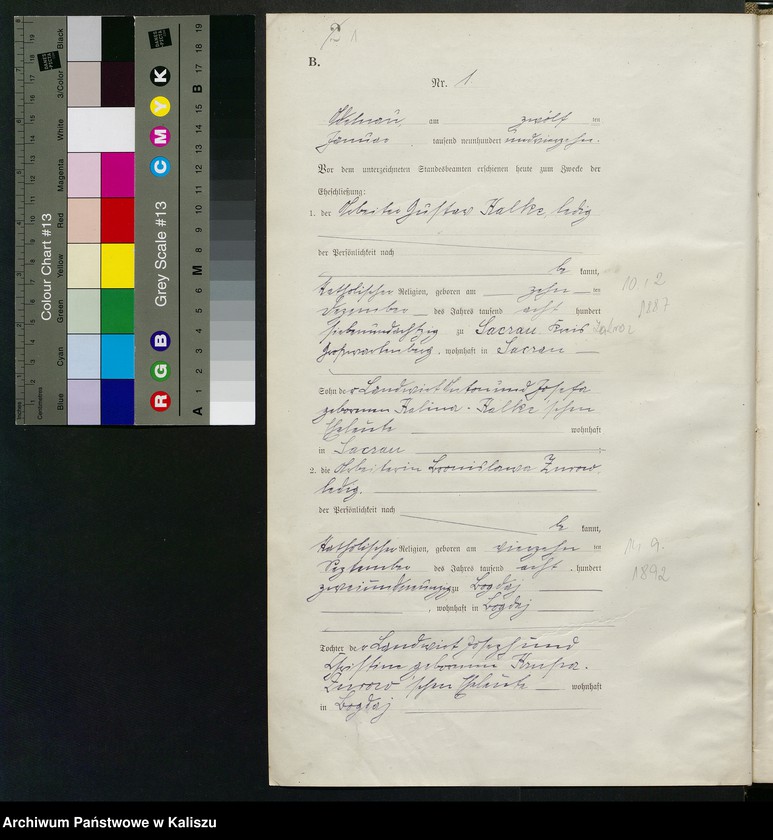 2 1
B.
Nr. 1.
Adelnau, am zwölf ten
Januar tausend neunhundert undvierzehn.
Vor dem unterzeichneten Standesbeamten erschienen heute zum Zwecke der
Eheschließung:
1. der Arbeiter Gustav Kalke ledig
der Persönlichkeit nach
be kannt,
katholischer Religion, geboren am zehn ten
Dezember des Jahres tausend acht hundert
siebenundachtzig zu Sacrau Kreis
Großwartenberg, wohnhaft in Sacrau
Sohn der Landwirt Anton und Josefa
geborenen Kalina - Kalke'schen
Eheleute wohnhaft
in Sacrau
2. die Arbeiterin Bronislawa Zurow
ledig.
der Persönlichkeit nach
be kannt,
katholischer Religion, geboren am vierzehn ten
September des Jahres tausend acht hundert
zweiundneunzig zu Bogdaj
, wohnhaft in Bogdaj
Tochter der Landwirt Joseph und
Christine geborenen Krupa.
Zurow'schen Eheleute wohnhaft
in Bogdaj
10 12
1887
9.
1892
Colour Chart #13
Grey Scale #13
Inches
Centimetres
Blue
Cyan
Green
Yellow
Red
Magenta
White
3/Color
Black
R G B
C M Y K
A 1 2 3 4 5 6 M 8 9 10 11 12 13 14 15 B 17 18 19
Archiwum Państwowe w Kaliszu